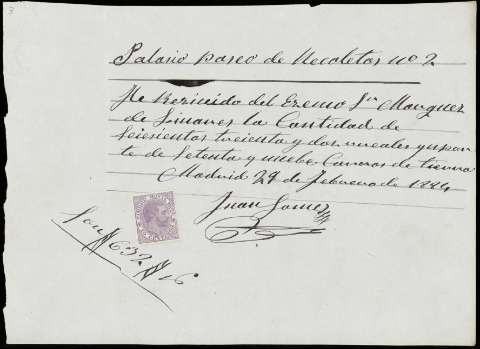 Palasio paseo de Recoletos nº 2
He Reziuido del Exemo Sr Marquez
de Linares la Cantidad de
Seicientos treienta y dos rreales
te de Setenta y nuebe Carros de tierra
Madrid 29 de Febrero de 1884
Juan Gomez
Son # 632 #